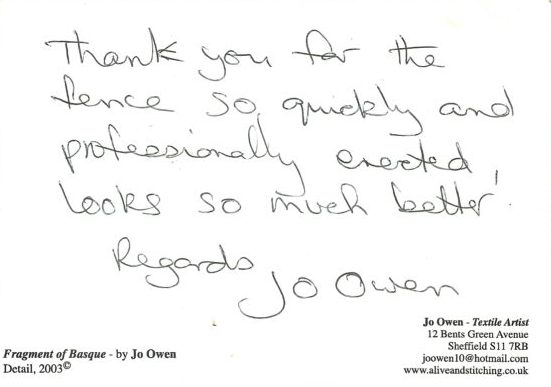 Thank you for the
fence so quickly and
professionally erected,
looks so much better!
Regards
Jo Owen
Jo Owen - Textile Artist
12 Bents Green Avenue
Sheffield S11 7RB
joowen10@hotmail.com
www.aliveandstitching.co.uk
Fragment of Basque - by Jo Owen
Detail, 2003©